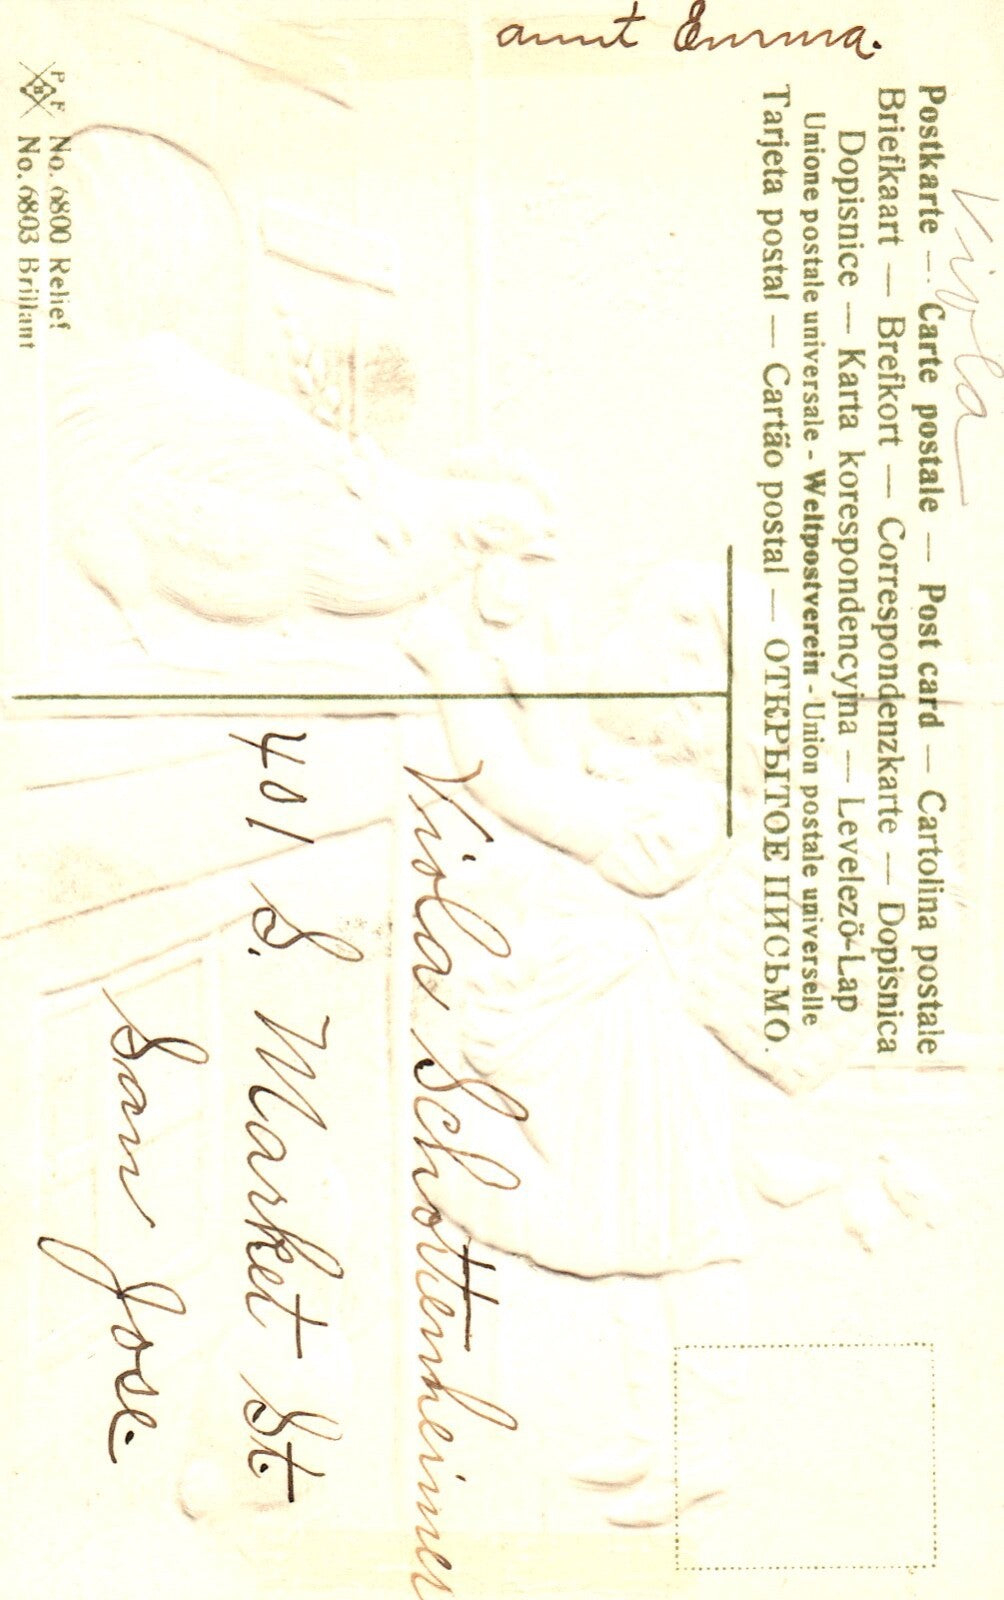 aunt Emma.
Viola
Postkarte — Carte postale — Post card — Cartolina postale
Briefkaart — Brefkort — Correspondenzkarte — Dopisnica
Dopisnice — Karta korespondencyjna — Levelezö-Lap
Unione postale universale - Weltpostverein - Union postale universelle
Tarjeta postal — Cartão postal — ОТКРЫТОЕ ПИСЬМО.
Viola Schottenheimer
401 S. Market St.
San Jose.
P F
B
No. 6800 Relief
No. 6803 Brillant